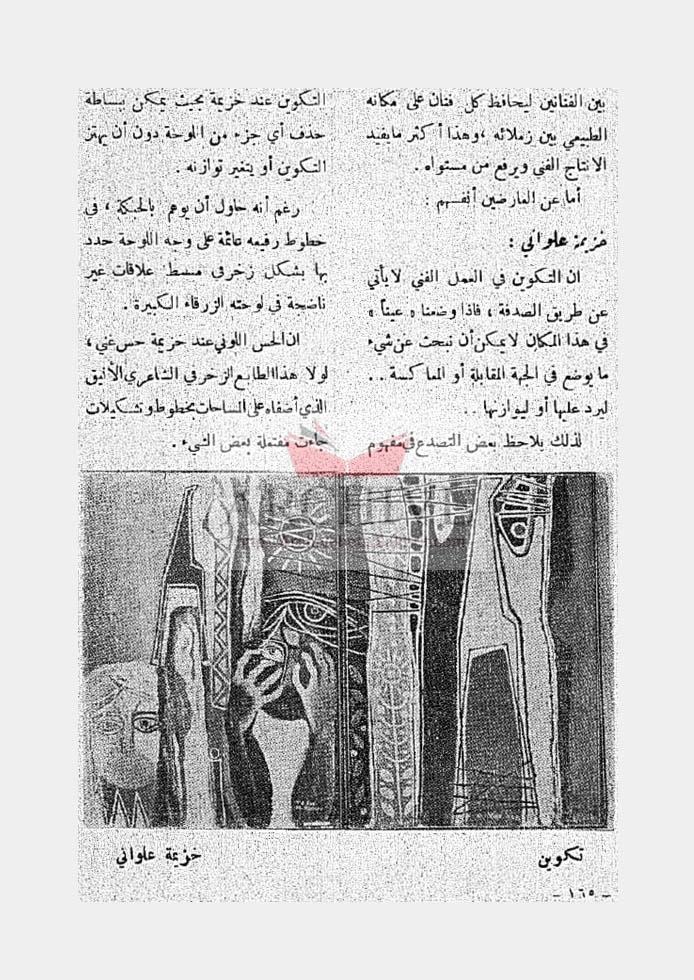 بين الفنانين ليحافظ كل فنان على مكانه
الطبيعي بين زملائه ، وهذا أكثر ما يفيد
الانتاج الفني ويرفع من مستواه .
أما عن العارضين أنفسهم :
خزيمة علواني :
ان التكوين في العمل الفني لا يأتي
عن طريق الصدفة ، فاذا وضعنا « عيناً »
في هذا المكان لا يمكن أن نبحث عن شيء
ما يوضع في الجهة المقابلة أو المعاكسة . .
ليرد عليها أو ليوازنها . .
لذلك يلاحظ بعض التصدع في مفهوم
التكوين عند خزيمة بحيث يمكن ببساطة
حذف أي جزء من اللوحة دون أن يهتز
التكوين أو يتغير توازنه .
رغم أنه حاول أن يوهم بالحبكة ، في
خطوط رفيعه عائمة على وجه اللوحة حدد
بها بشكل زخرفي مبسط علاقات غير
ناضجة في لوحته الزرقاء الكبيرة .
ان الحس اللوني عند خزيمة حس غني ،
لولا هذا الطابع الزخرفي الشاعري الأنيق
الذي أضفاه على المساحات بخطوط وتشكيلات
جاءت مفتعلة بعض الشيء .
ARCHIVE
تكوين
خزيمة علواني
- ١٦٥ -